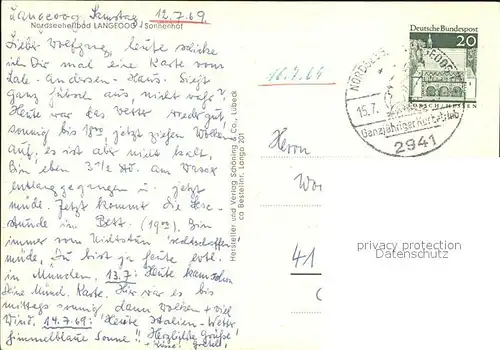 Langeoog Samstag 12.7.69
Nordseeheilbad LANGEOOG Sonnenhof
Lieber Wolfgang, heute schicke
ich Dir mal eine Karte vom
Lale-Andersen-Haus. Sieht
ganz hübsch aus, nicht wahr?
Heute war das Wetter wieder gut
sonnig bis 18 00, jetzt ziehen Wolken
auf, es ist aber nicht kalt,
Bin eben 3 1/2 Std. am Wasser
entlanggegangen u. jetzt
müde. Jetzt kommt die Lese-
stunde im Bett. (19 00). Bin
immer vom Nichtstun
müde. Du bist ja heute evtl.
in München. 13.7: Heute kam schon
Deine Münch. Karte. Hier war es bis
mittags sonnig dann Wolken + viel
Wind. 14.7.69: Heute Italien-Wetter
himmelblaue Sonne!! Herzliche Grüße!
Hersteller und Verlag Schöning & Co., Lübeck
ca Bestellnr. Lango 201
16.7.69
Deutsche Bundespost
20
15.7.
Ganzjähriger Kurbetrieb
2941
Herrn
41
privacy protection
Datenschutz